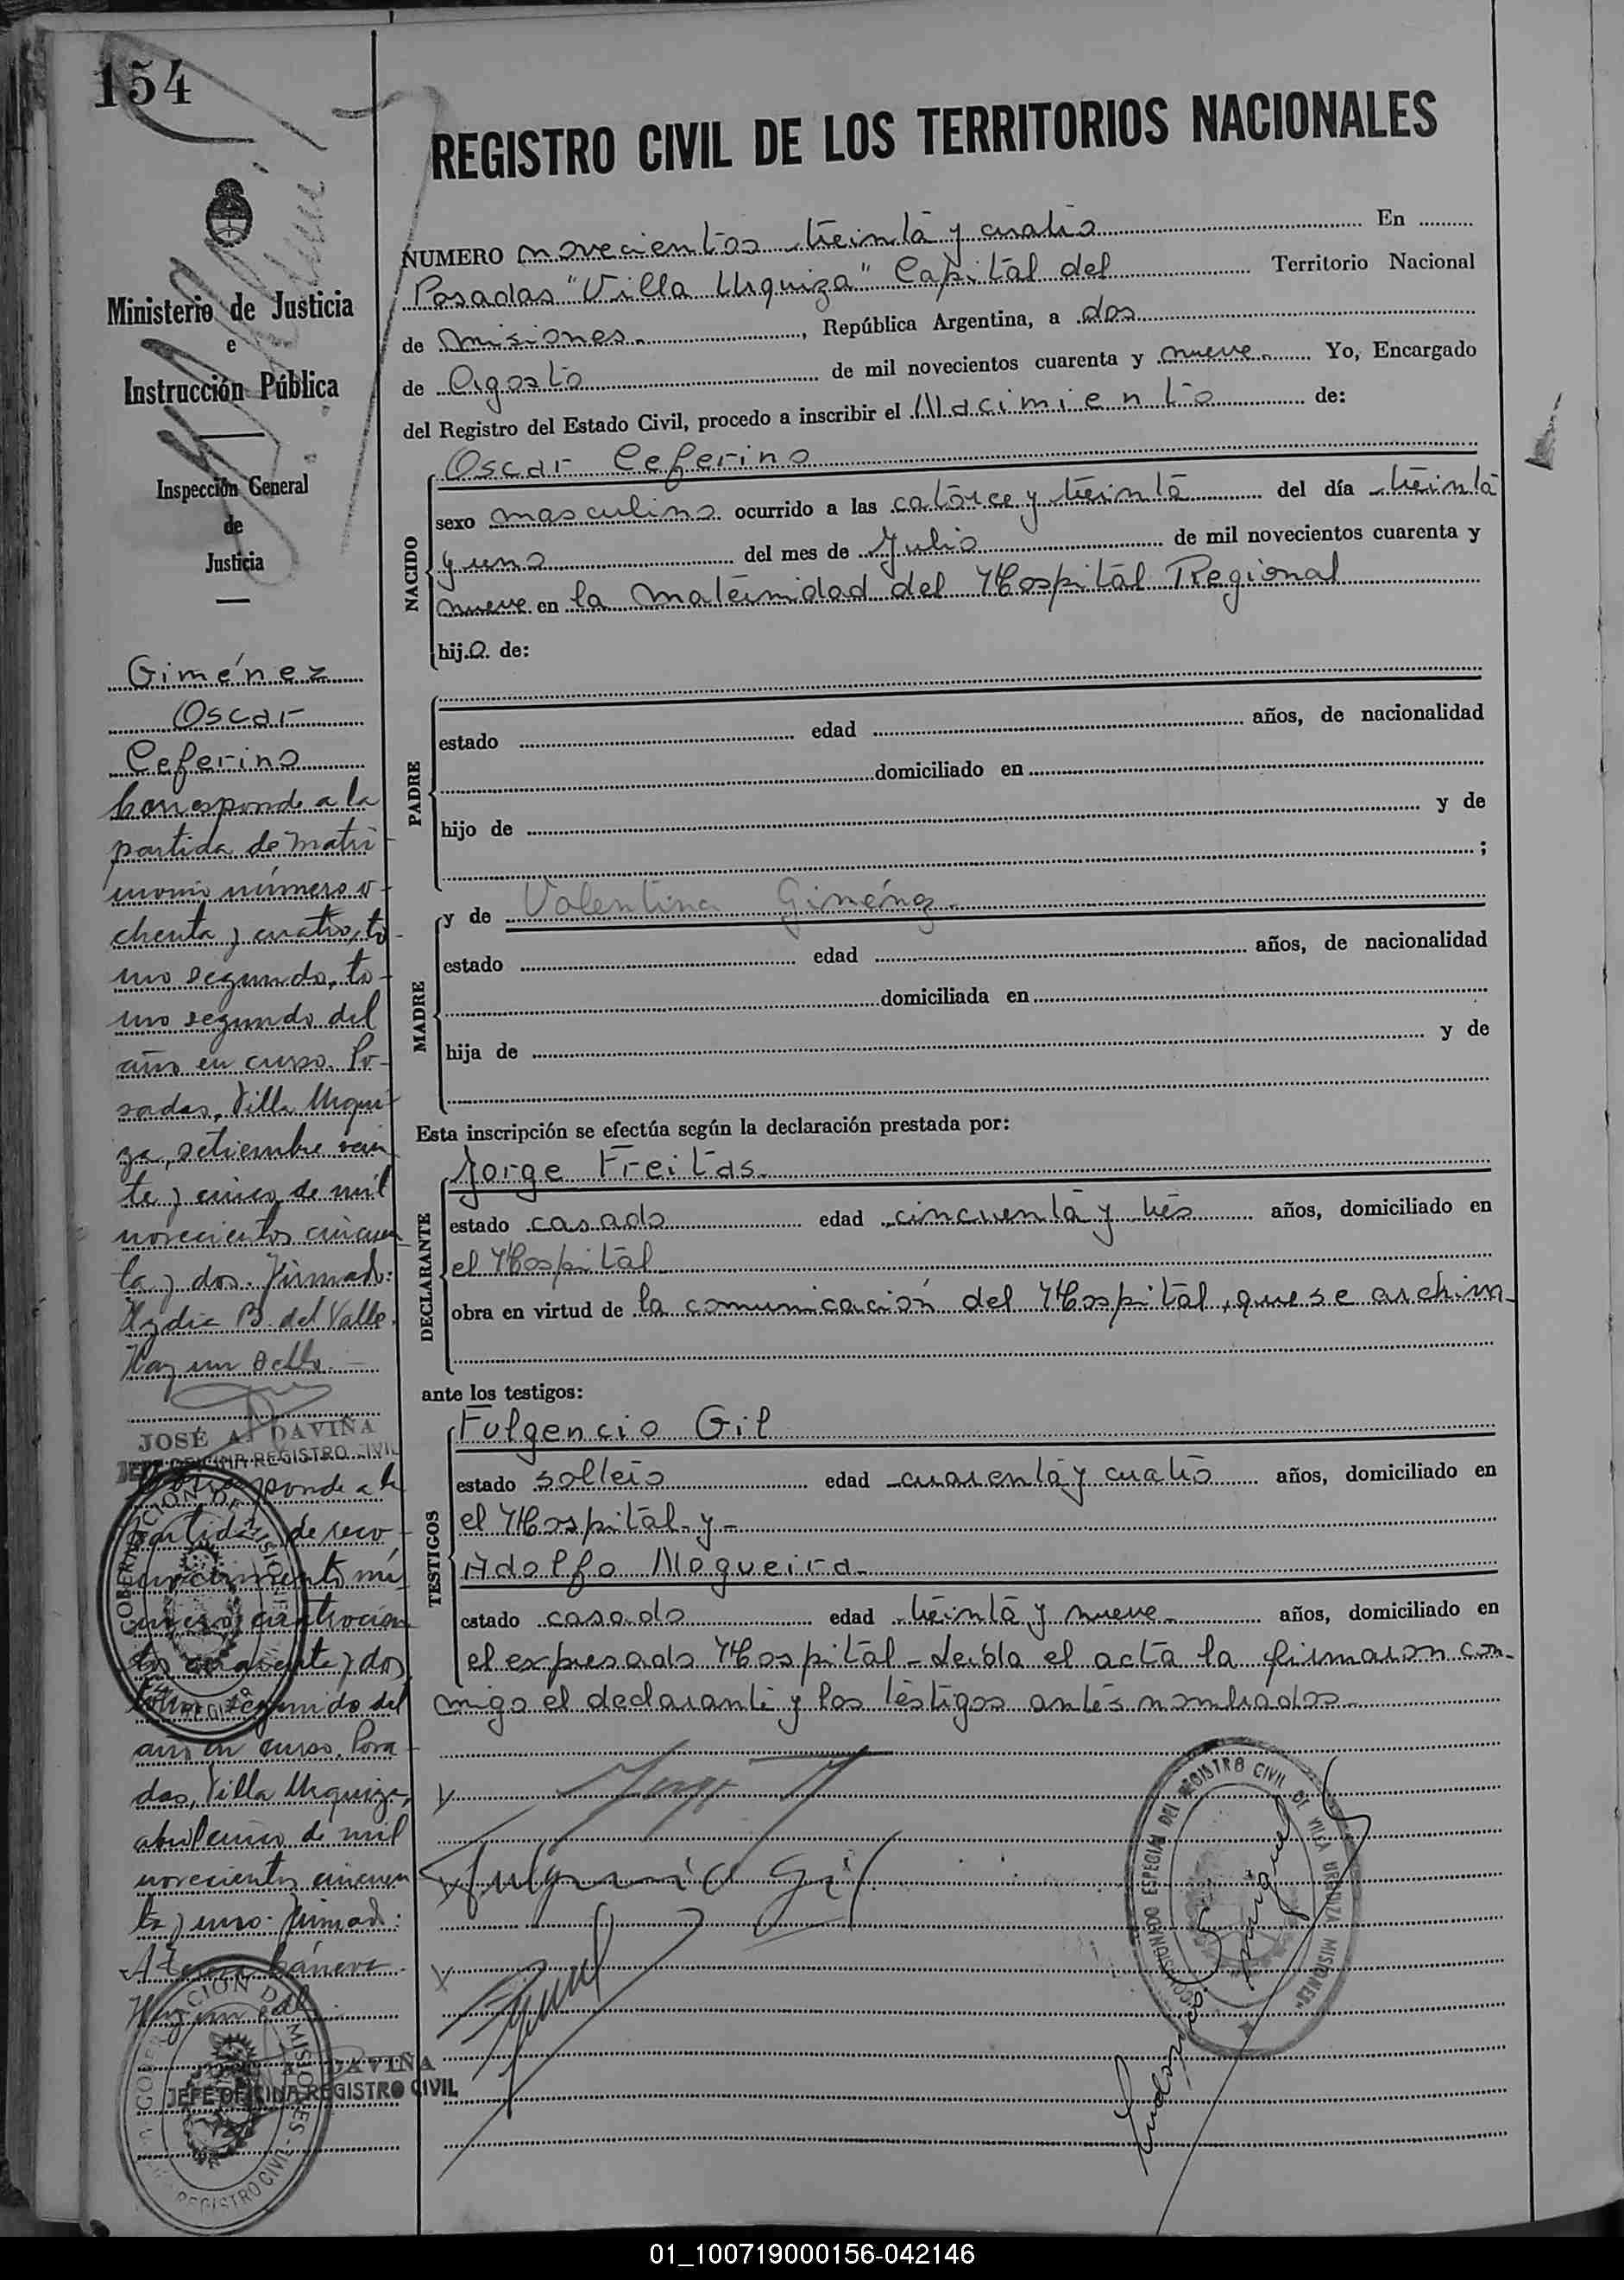 154
Ministerio de Justicia
e
Instrucción Pública
Inspección General
de
Justicia
Giménez
Oscar
Ceferino
Corresponde a la
partida de matri
monio número o-
chenta y cuatro, to-
mo segundo, to-
mo segundo del
año en curso. Po-
sadas, Villa Urqui-
za, setiembre vein
te y cinco de mil
novecientos cincuen
ta y dos. Firmado:
Lydia B. del Valle.
Hay un sello.
JOSÉ A. DAVIÑA
JEFE OFICINA REGISTRO CIVIL
Corresponde a la
partida de reco-
nocimiento nú-
mero cuatrocien
tos cuarenta y dos,
tomo segundo del
año en curso. Posa-
das, Villa Urquiza,
abril cinco de mil
novecientos cincuen
ta y uno. Firmado:
Hay un sello
A. DAVIÑA
JEFE OFICINA REGISTRO CIVIL
REGISTRO CIVIL DE LOS TERRITORIOS NACIONALES
NUMERO novecientos treinta y cuatro En
Posadas "Villa Urquiza" Capital del Territorio Nacional
de Misiones, República Argentina, a dos
de Agosto de mil novecientos cuarenta y nueve Yo, Encargado
del Registro del Estado Civil, procedo a inscribir el Nacimiento de:
NACIDO
Oscar Ceferino
sexo masculino ocurrido a las catorce y treinta del día treinta
y uno del mes de Julio de mil novecientos cuarenta y
nueve en la maternidad del Hospital Regional
hijo de:
PADRE
estado edad años, de nacionalidad
domiciliado en
hijo de y de
;
MADRE
y de Valentina Giménez
estado edad años, de nacionalidad
domiciliada en
hija de y de
Esta inscripción se efectúa según la declaración prestada por:
DECLARANTE
Jorge Freitas
estado casado edad cincuenta y tres años, domiciliado en
el Hospital
obra en virtud de la comunicación del Hospital, que se archiva
ante los testigos:
TESTIGOS
Fulgencio Gil
estado soltero edad cuarenta y cuatro años, domiciliado en
el Hospital y
Adolfo Nogueira
estado casado edad treinta y nueve años, domiciliado en
el expresado Hospital - Leída el acta la firmaron con-
migo el declarante y los testigos antes nombrados
Fulgencio Gil
REGISTRO CIVIL DE VILLA URQUIZA MISIONES
01_100719000156-042146